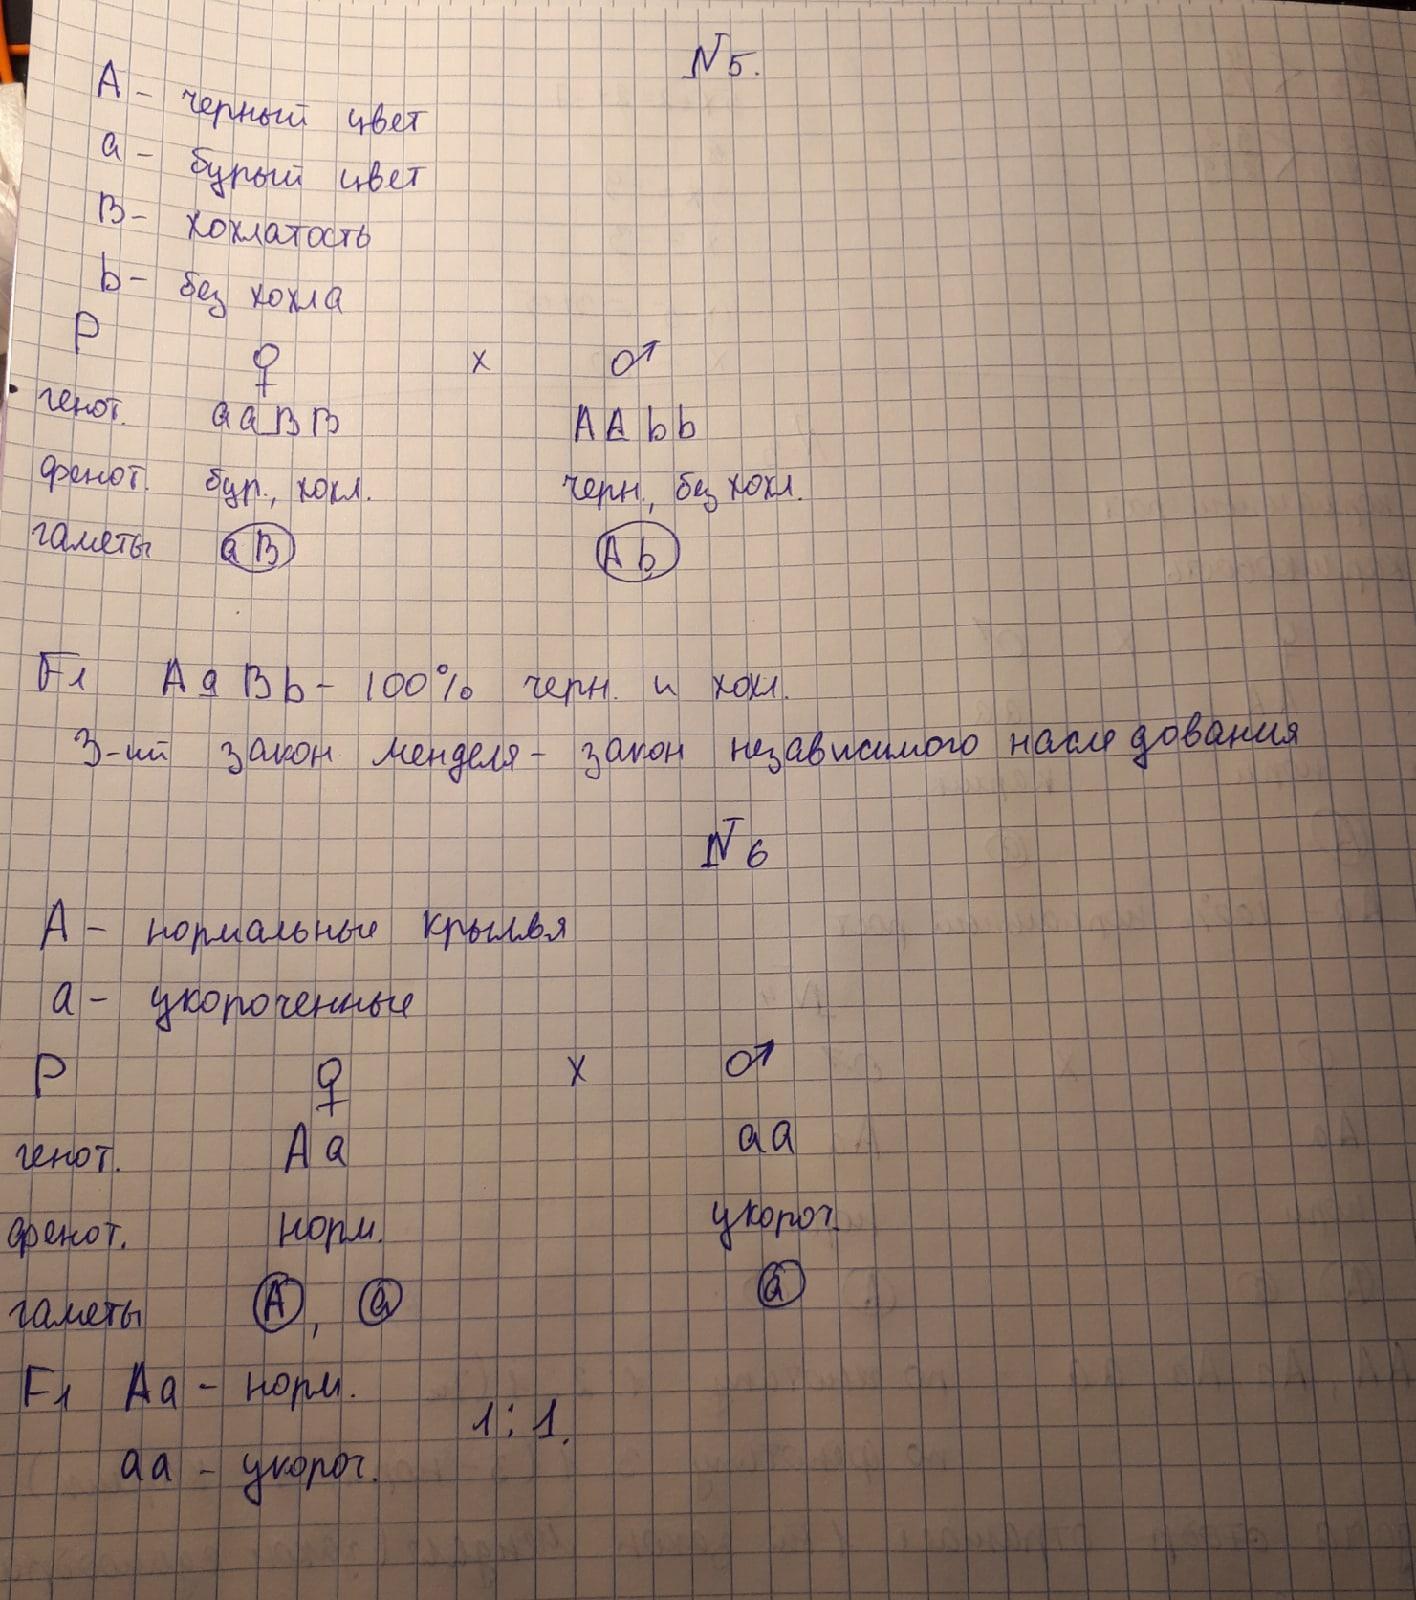 N5.
A - черный цвет
a - бурый цвет
B - хохлатость
b - без хохла
P
♀ x ♂
генот. aaBB AAbb
фенот. бур., хохл. черн., без хохл.
гаметы aB Ab
F1 AaBb - 100% черн. и хохл.
3-ий закон менделя - закон независимого наследования
N6
A - нормальные крылья
a - укороченные
P ♀ x ♂
генот. Aa aa
фенот. норм. укороч.
гаметы A, a a
F1 Aa - норм.
1:1.
aa - укороч.